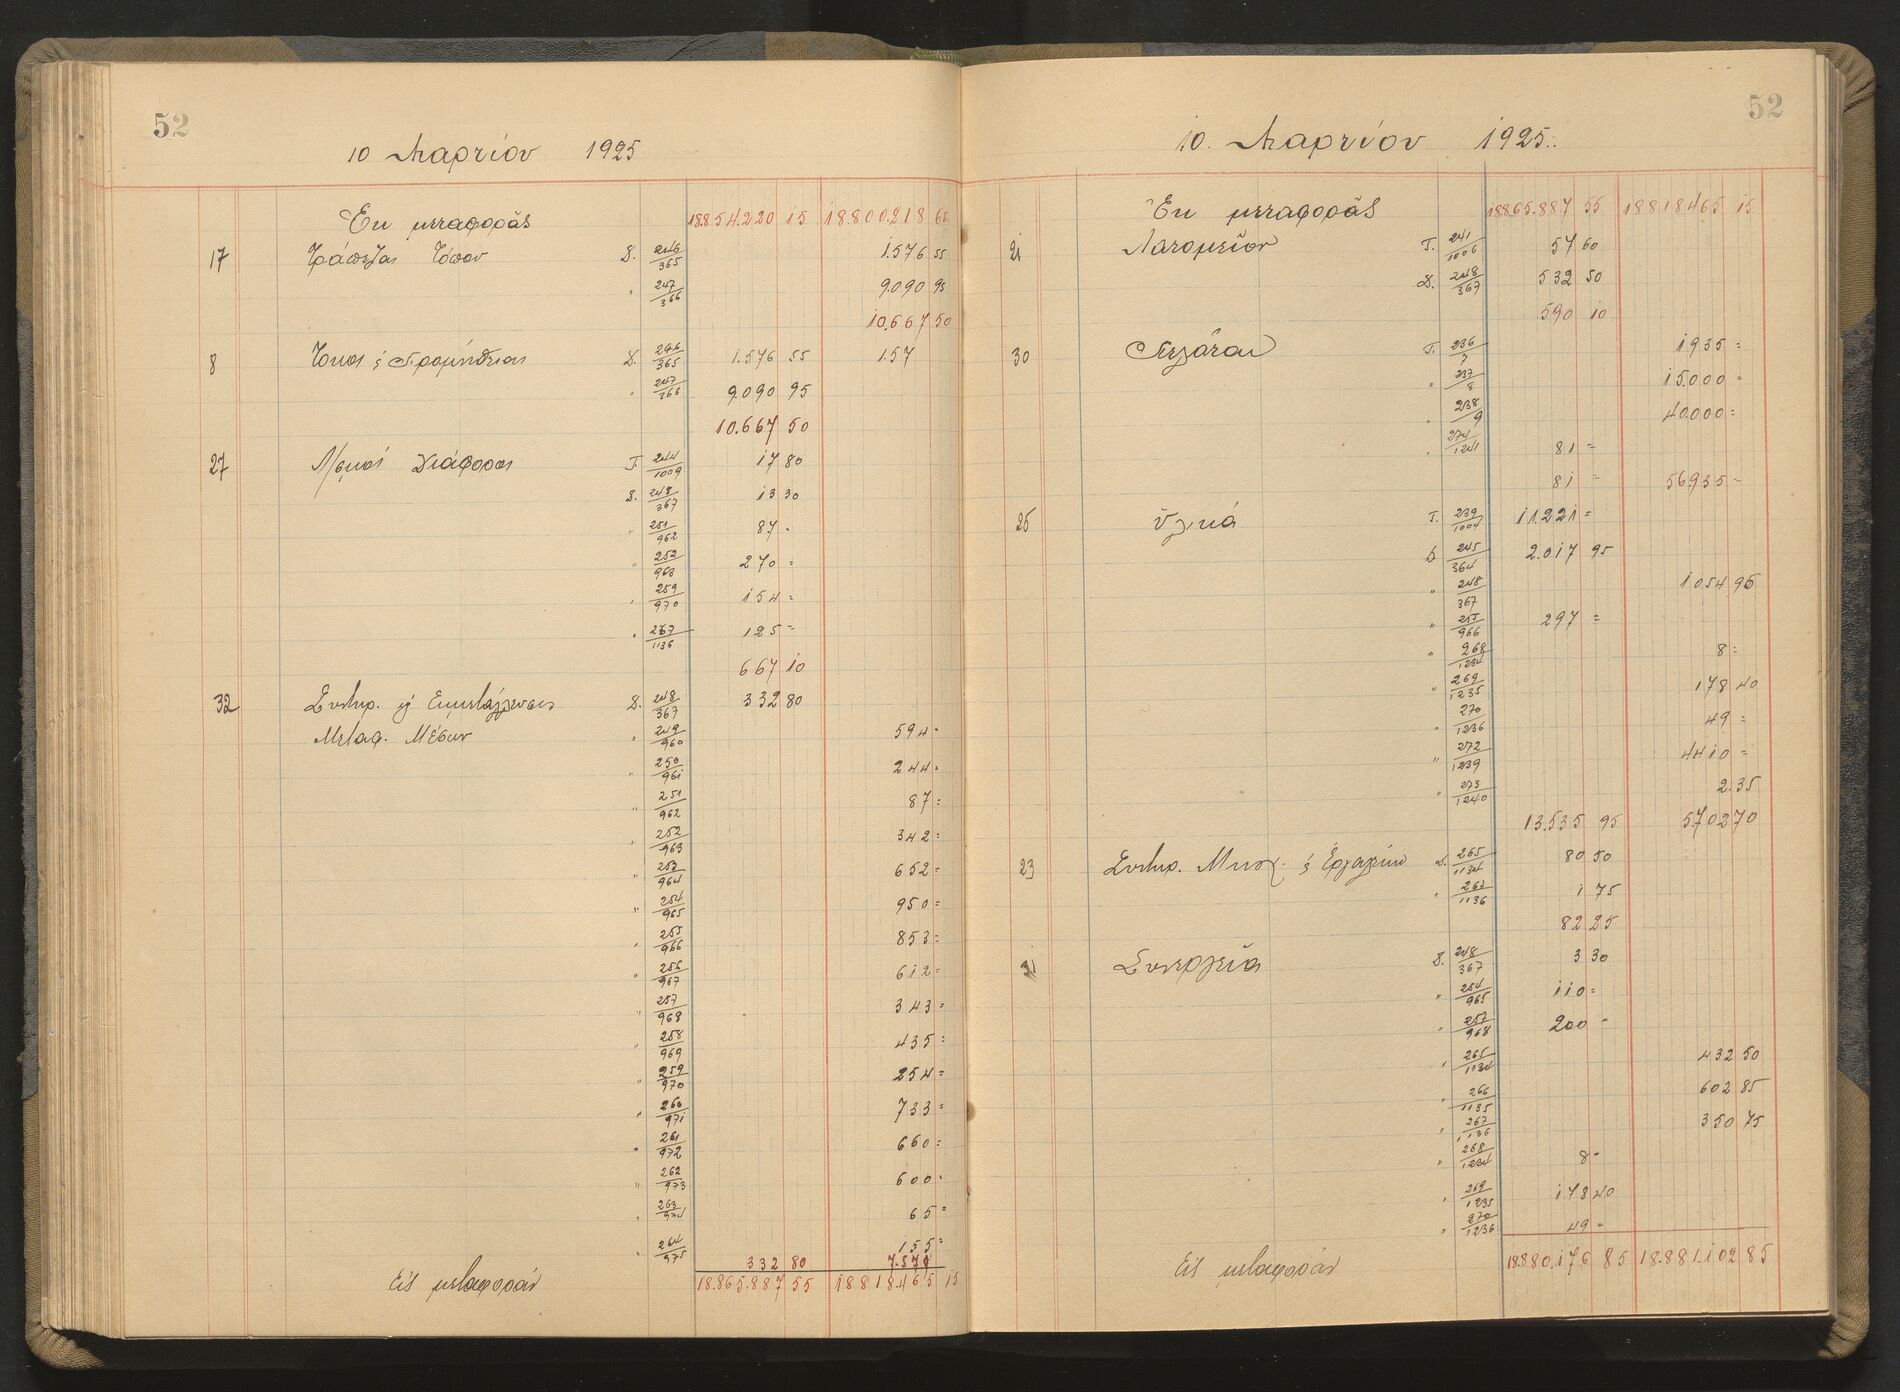 52
10 Μαρτίου 1925
Εκ μεταφοράς 18.854.220 15 18.800.218 65
17 Τράπεζαι Τόπου Δ. 246/365 1.576 55
" 247/366 9.090 95
10.667 50
8 Τόκοι & Προμήθειαι Δ. 246/365 1.576 55 1.57
" 247/366 9.090 95
10.667 50
27 Λ/σμοί Διάφοροι Τ. 244/1009 17 80
Δ. 248/367 13 30
" 251/962 87 -
" 252/963 270 =
" 259/970 154 =
" 267/1136 125 =
667 10
32 Συντηρ. & Εκμεταλλεύσεις Δ. 248/367 332 80
Μεταφ. Μέσων " 249/960 594 =
" 250/961 244 =
" 251/962 87 =
" 252/963 342 =
" 253/964 652 =
" 254/965 950 =
" 255/966 853 =
" 256/967 612 =
" 257/968 343 =
" 258/969 435 =
" 259/970 254 =
" 260/971 733 =
" 261/972 660 =
" 262/973 600 =
" 263/974 65 =
" 264/975 155 =
332 80 7.579
Εις μεταφοράν 18.865.887 55 18.818.465 15
52
10. Μαρτίου 1925.
Εκ μεταφοράς 18.865.887 55 18.818.465 15
21 Λατομείον Τ. 241/1006 57 60
Δ. 248/367 532 50
590 10
30 Πελάται Τ. 236/7 1.935 =
" 237/8 15.000 =
" 238/9 40.000 =
" 274/1241 81 =
81 = 56.935 =
25 Υλικά Τ. 239/1004 11.221 =
Δ 245/364 2.017 95
" 248/367 1.054 95
" 255/966 297 =
" 268/1234 8 =
" 269/1235 178 40
" 270/1236 49 =
" 272/1239 4410 =
" 273/1240 2.35
13.535 95 5.702 70
23 Συντηρ. Μηχ. & Εργαλείων Δ. 265/1134 80 50
" 267/1136 1 75
82 25
31 Συνεργεία Δ. 248/367 3 30
" 254/965 110 =
" 257/968 200 =
" 265/1134 432 50
" 266/1135 602 85
" 267/1136 350 75
" 268/1234 8 =
" 269/1235 178 40
" 270/1236 49 =
Εις μεταφοράν 18.880.176 85 18.881.102 85